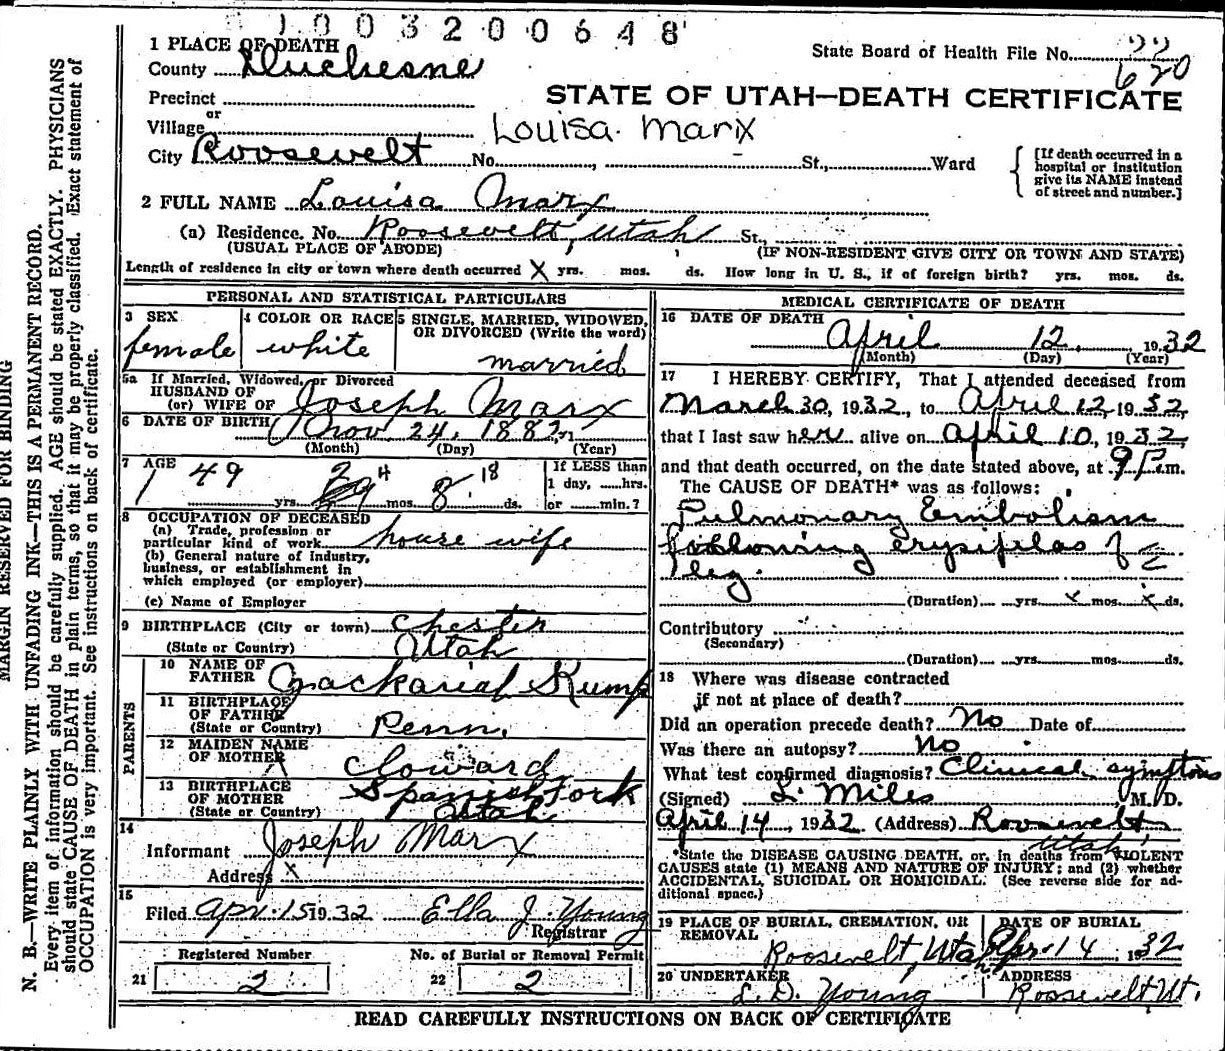 1003200648
1 PLACE OF DEATH
County Duchesne
State Board of Health File No. 22
620
Precinct
or
Village
STATE OF UTAH—DEATH CERTIFICATE
Louisa Marx
City Roosevelt No. , St., Ward
[If death occurred in a hospital or institution give its NAME instead of street and number.]
2 FULL NAME Louisa Marx
(a) Residence. No. Roosevelt, Utah St.,
(USUAL PLACE OF ABODE) (IF NON-RESIDENT GIVE CITY OR TOWN AND STATE)
Length of residence in city or town where death occurred X yrs. mos. ds. How long in U. S., if of foreign birth? yrs. mos. ds.
PERSONAL AND STATISTICAL PARTICULARS
3 SEX
female
4 COLOR OR RACE
white
5 SINGLE, MARRIED, WIDOWED, OR DIVORCED (Write the word)
married
5a If Married, Widowed, or Divorced
HUSBAND OF
(or) WIFE OF Joseph Marx
6 DATE OF BIRTH Nov. 24, 1882
(Month) (Day) (Year)
7 AGE
49 yrs. 4 mos. 18 ds.
If LESS than
1 day, hrs.
or min.?
8 OCCUPATION OF DECEASED
(a) Trade, profession or
particular kind of work house wife
(b) General nature of Industry,
business, or establishment in
which employed (or employer)
(c) Name of Employer
9 BIRTHPLACE (City or town) Chester
(State or Country) Utah
PARENTS
10 NAME OF
FATHER Zackariah Kump
11 BIRTHPLACE
OF FATHER
(State or Country) Penn.
12 MAIDEN NAME
OF MOTHER Cloward
13 BIRTHPLACE
OF MOTHER Spanish Fork
(State or Country) Utah
14
Informant Joseph Marx
Address X
15
Filed Apr. 15 1932 Ella J. Young
Registrar
Registered Number No. of Burial or Removal Permit
21 2 22 2
MEDICAL CERTIFICATE OF DEATH
16 DATE OF DEATH
April 12, 1932
(Month) (Day) (Year)
17 I HEREBY CERTIFY, That I attended deceased from
March 30, 1932, to April 12, 1932,
that I last saw her alive on April 10, 1932,
and that death occurred, on the date stated above, at 9 P.m.
The CAUSE OF DEATH* was as follows:
Pulmonary Embolism
following erysipelas of
leg.
(Duration) yrs. x mos. x ds.
Contributory
(Secondary)
(Duration) yrs. mos. ds.
18 Where was disease contracted
if not at place of death?
Did an operation precede death? No Date of
Was there an autopsy? no
What test confirmed diagnosis? Clinical symptoms
(Signed) L. Miles M. D.
April 14, 1932 (Address) Roosevelt
Utah
*State the DISEASE CAUSING DEATH, or, in deaths from VIOLENT
CAUSES state (1) MEANS AND NATURE OF INJURY; and (2) whether
ACCIDENTAL, SUICIDAL OR HOMICIDAL. (See reverse side for ad-
ditional space.)
19 PLACE OF BURIAL, CREMATION, OR
REMOVAL
Roosevelt, Utah
DATE OF BURIAL
Apr. 14 1932
20 UNDERTAKER
L. D. Young
ADDRESS
Roosevelt, Ut.
READ CAREFULLY INSTRUCTIONS ON BACK OF CERTIFICATE
MARGIN RESERVED FOR BINDING
N. B.—WRITE PLAINLY WITH UNFADING INK—THIS IS A PERMANENT RECORD.
Every item of information should be carefully supplied. AGE should be stated EXACTLY. PHYSICIANS
should state CAUSE OF DEATH in plain terms, so that it may be properly classified. Exact statement of
OCCUPATION is very important. See instructions on back of certificate.